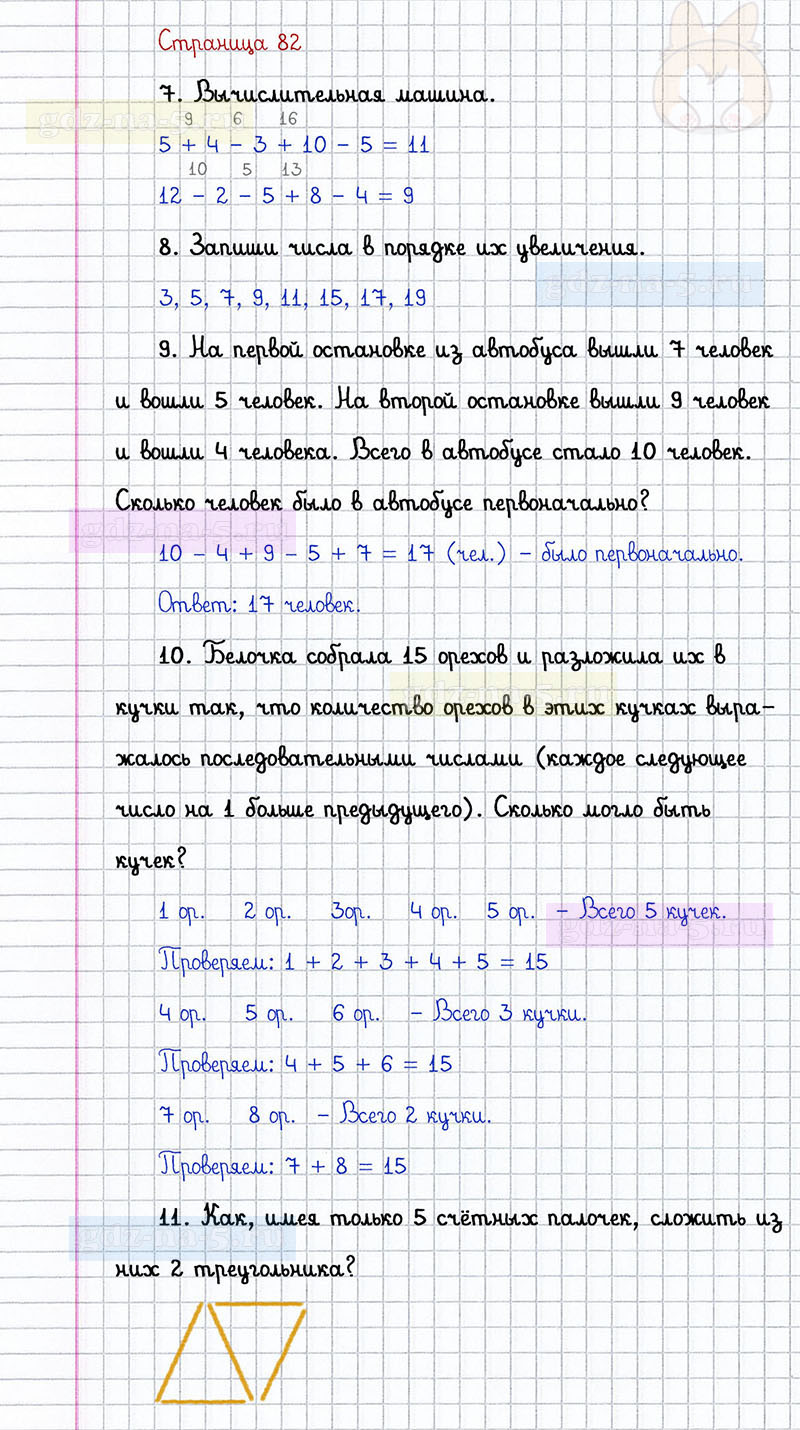 Страница 82
7. Вычислительная машина.
9 6 16
5 + 4 - 3 + 10 - 5 = 11
10 5 13
12 - 2 - 5 + 8 - 4 = 9
8. Запиши числа в порядке их увеличения.
gdz-na-5.ru
3, 5, 7, 9, 11, 15, 17, 19
9. На первой остановке из автобуса вышли 7 человек
и вошли 5 человек. На второй остановке вышли 9 человек
и вошли 4 человека. Всего в автобусе стало 10 человек.
Сколько человек было в автобусе первоначально?
gdz-na-5.ru
10 - 4 + 9 - 5 + 7 = 17 (чел.) - было первоначально.
Ответ: 17 человек.
10. Белочка собрала 15 орехов и разложила их в
gdz-na-5.ru
кучки так, что количество орехов в этих кучках выра-
жалось последовательными числами (каждое следующее
число на 1 больше предыдущего). Сколько могло быть
кучек?
1 ор. 2 ор. 3ор. 4 ор. 5 ор. - Всего 5 кучек.
gdz-na-5.ru
Проверяем: 1 + 2 + 3 + 4 + 5 = 15
4 ор. 5 ор. 6 ор. - Всего 3 кучки.
Проверяем: 4 + 5 + 6 = 15
7 ор. 8 ор. - Всего 2 кучки.
Проверяем: 7 + 8 = 15
11. Как, имея только 5 счётных палочек, сложить из
gdz-na-5.ru
них 2 треугольника?